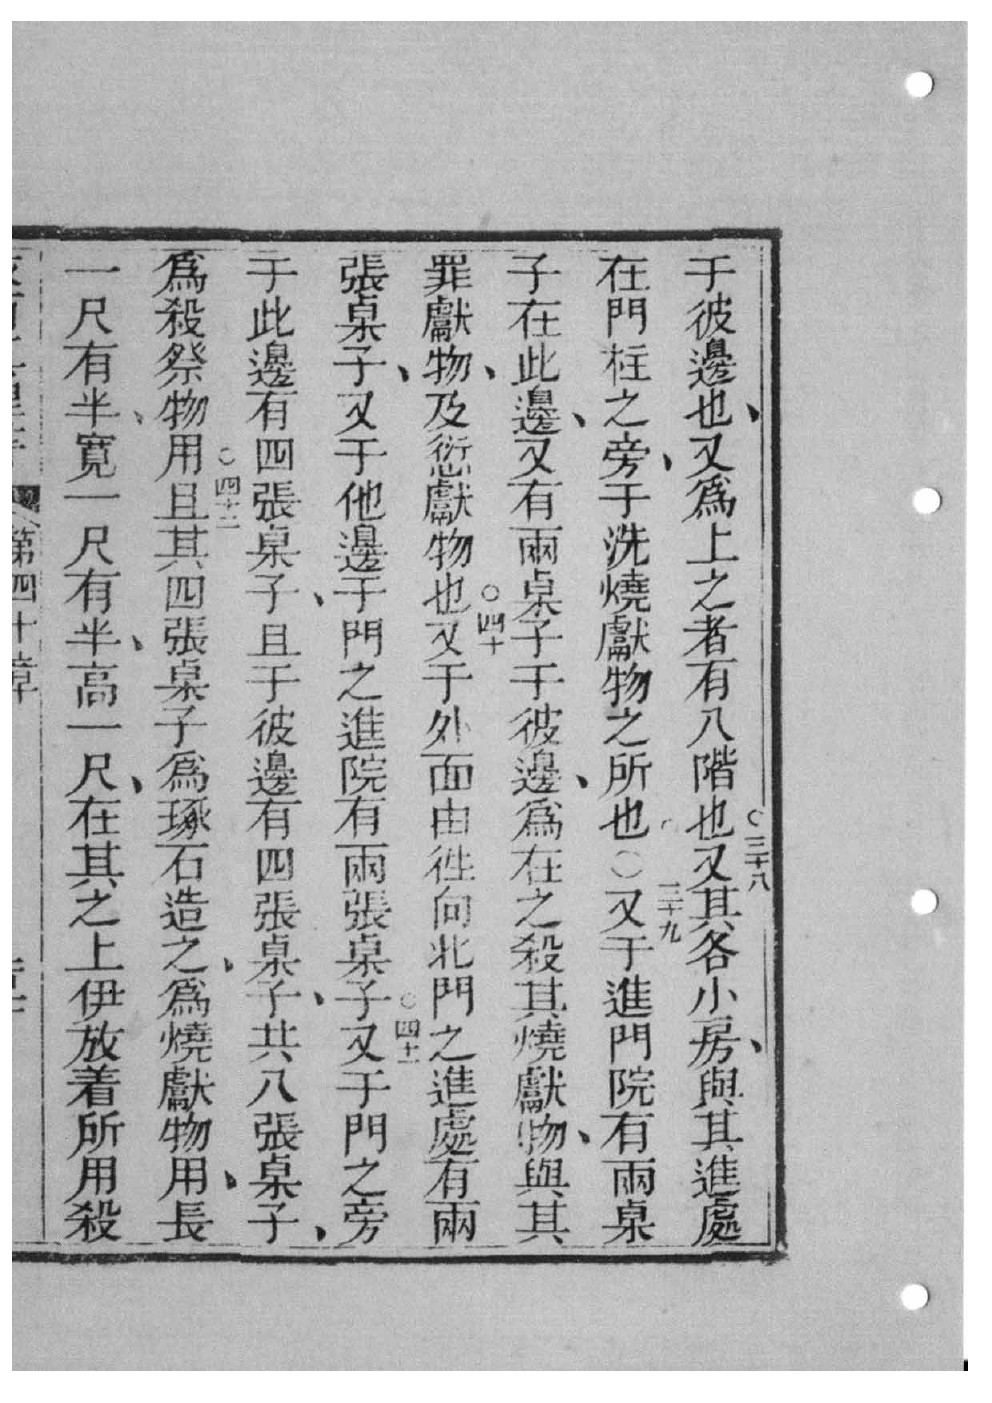 于彼邊也、又爲上之者有八階也○三十八又其各小房、與其進處
在門柱之旁、于洗燒獻物之所也○三十九又于進門院有兩桌
子在此邊、又有兩桌子于彼邊、爲在之殺其燒獻物、與其
罪獻物、及愆獻物也○四十又于外面由徃向北門之進處有兩
張桌子、又于他邊于門之進院有兩張桌子○四十一又于門之旁
于此邊有四張桌子、且于彼邊有四張桌子、共八張桌子、
爲殺祭物用○四十二且其四張桌子爲琢石造之、爲燒獻物用、長
一尺有半、寬一尺有半、高一尺、在其之上伊放着所用殺
第四十章